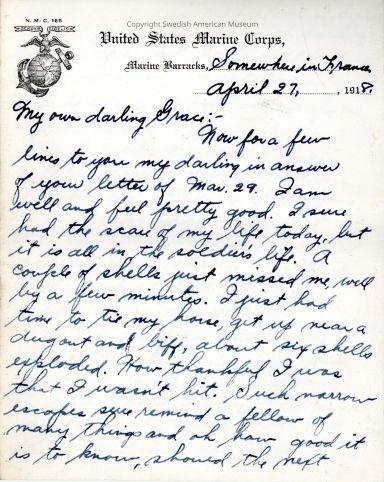 Copyright Swedish American Museum
N. M. C. 165
United States Marine Corps,
Marine Barracks, Somewhere in France
April 27, 1918.
My own darling Grace:-
Now for a few
lines to you my darling in answer
of your letter of Mar. 29. I am
well and feel pretty good. I sure
had the scare of my life, today, but
it is all in the soldiers life. A
couple of shells just missed me, well
by a few minutes. I just had
time to tie my horse, get up near a
dugout and biff, about six shells
exploded. How thankful I was
that I wasn't hit. Such narrow
escapes sure remind a fellow of
many things and oh, how good it
is to know, should the next